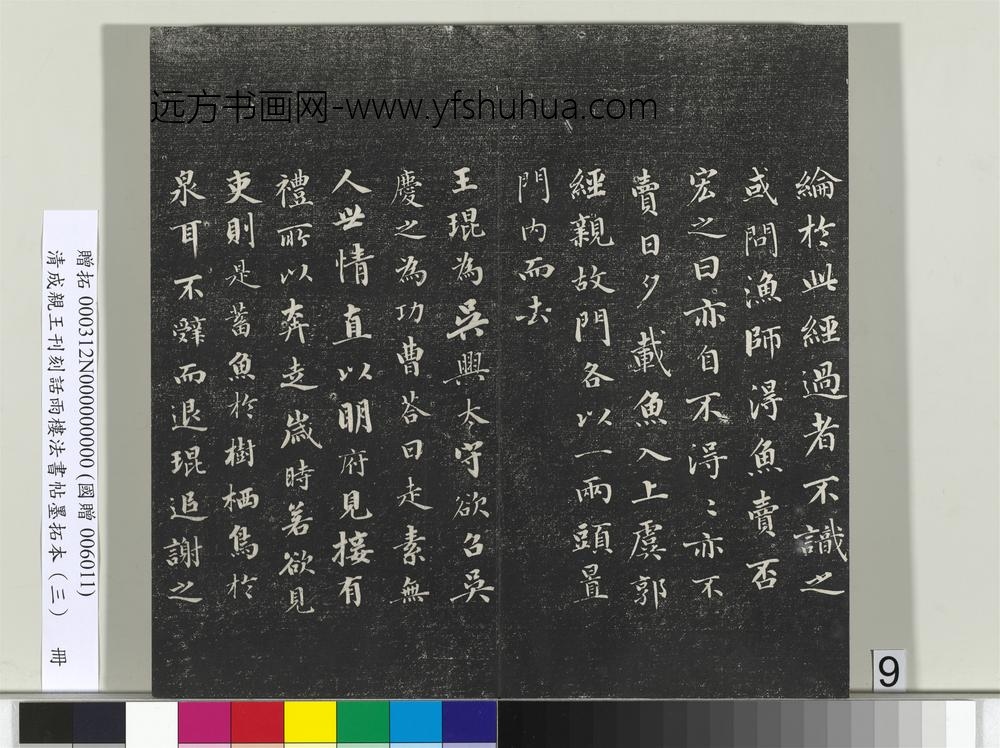 远方书画网-www.yfshuhua.com
綸於此經過者不識之
或問漁師得魚賣否
宏之曰亦自不得得亦不
賣日夕載魚入上虞郭
經親故門各以一兩頭置
門內而去
王琨為吳興太守欲召吳
慶之為功曹荅曰走素無
人世情直以明府見接有
禮所以奔走歲時若欲見
吏則是蓄魚於樹栖鳥於
泉耳不辤而退琨追謝之
贈拓 000312N000000000 (國贈 006011)
清成親王刊刻詒晉樓法書帖墨拓本(三) 冊
9